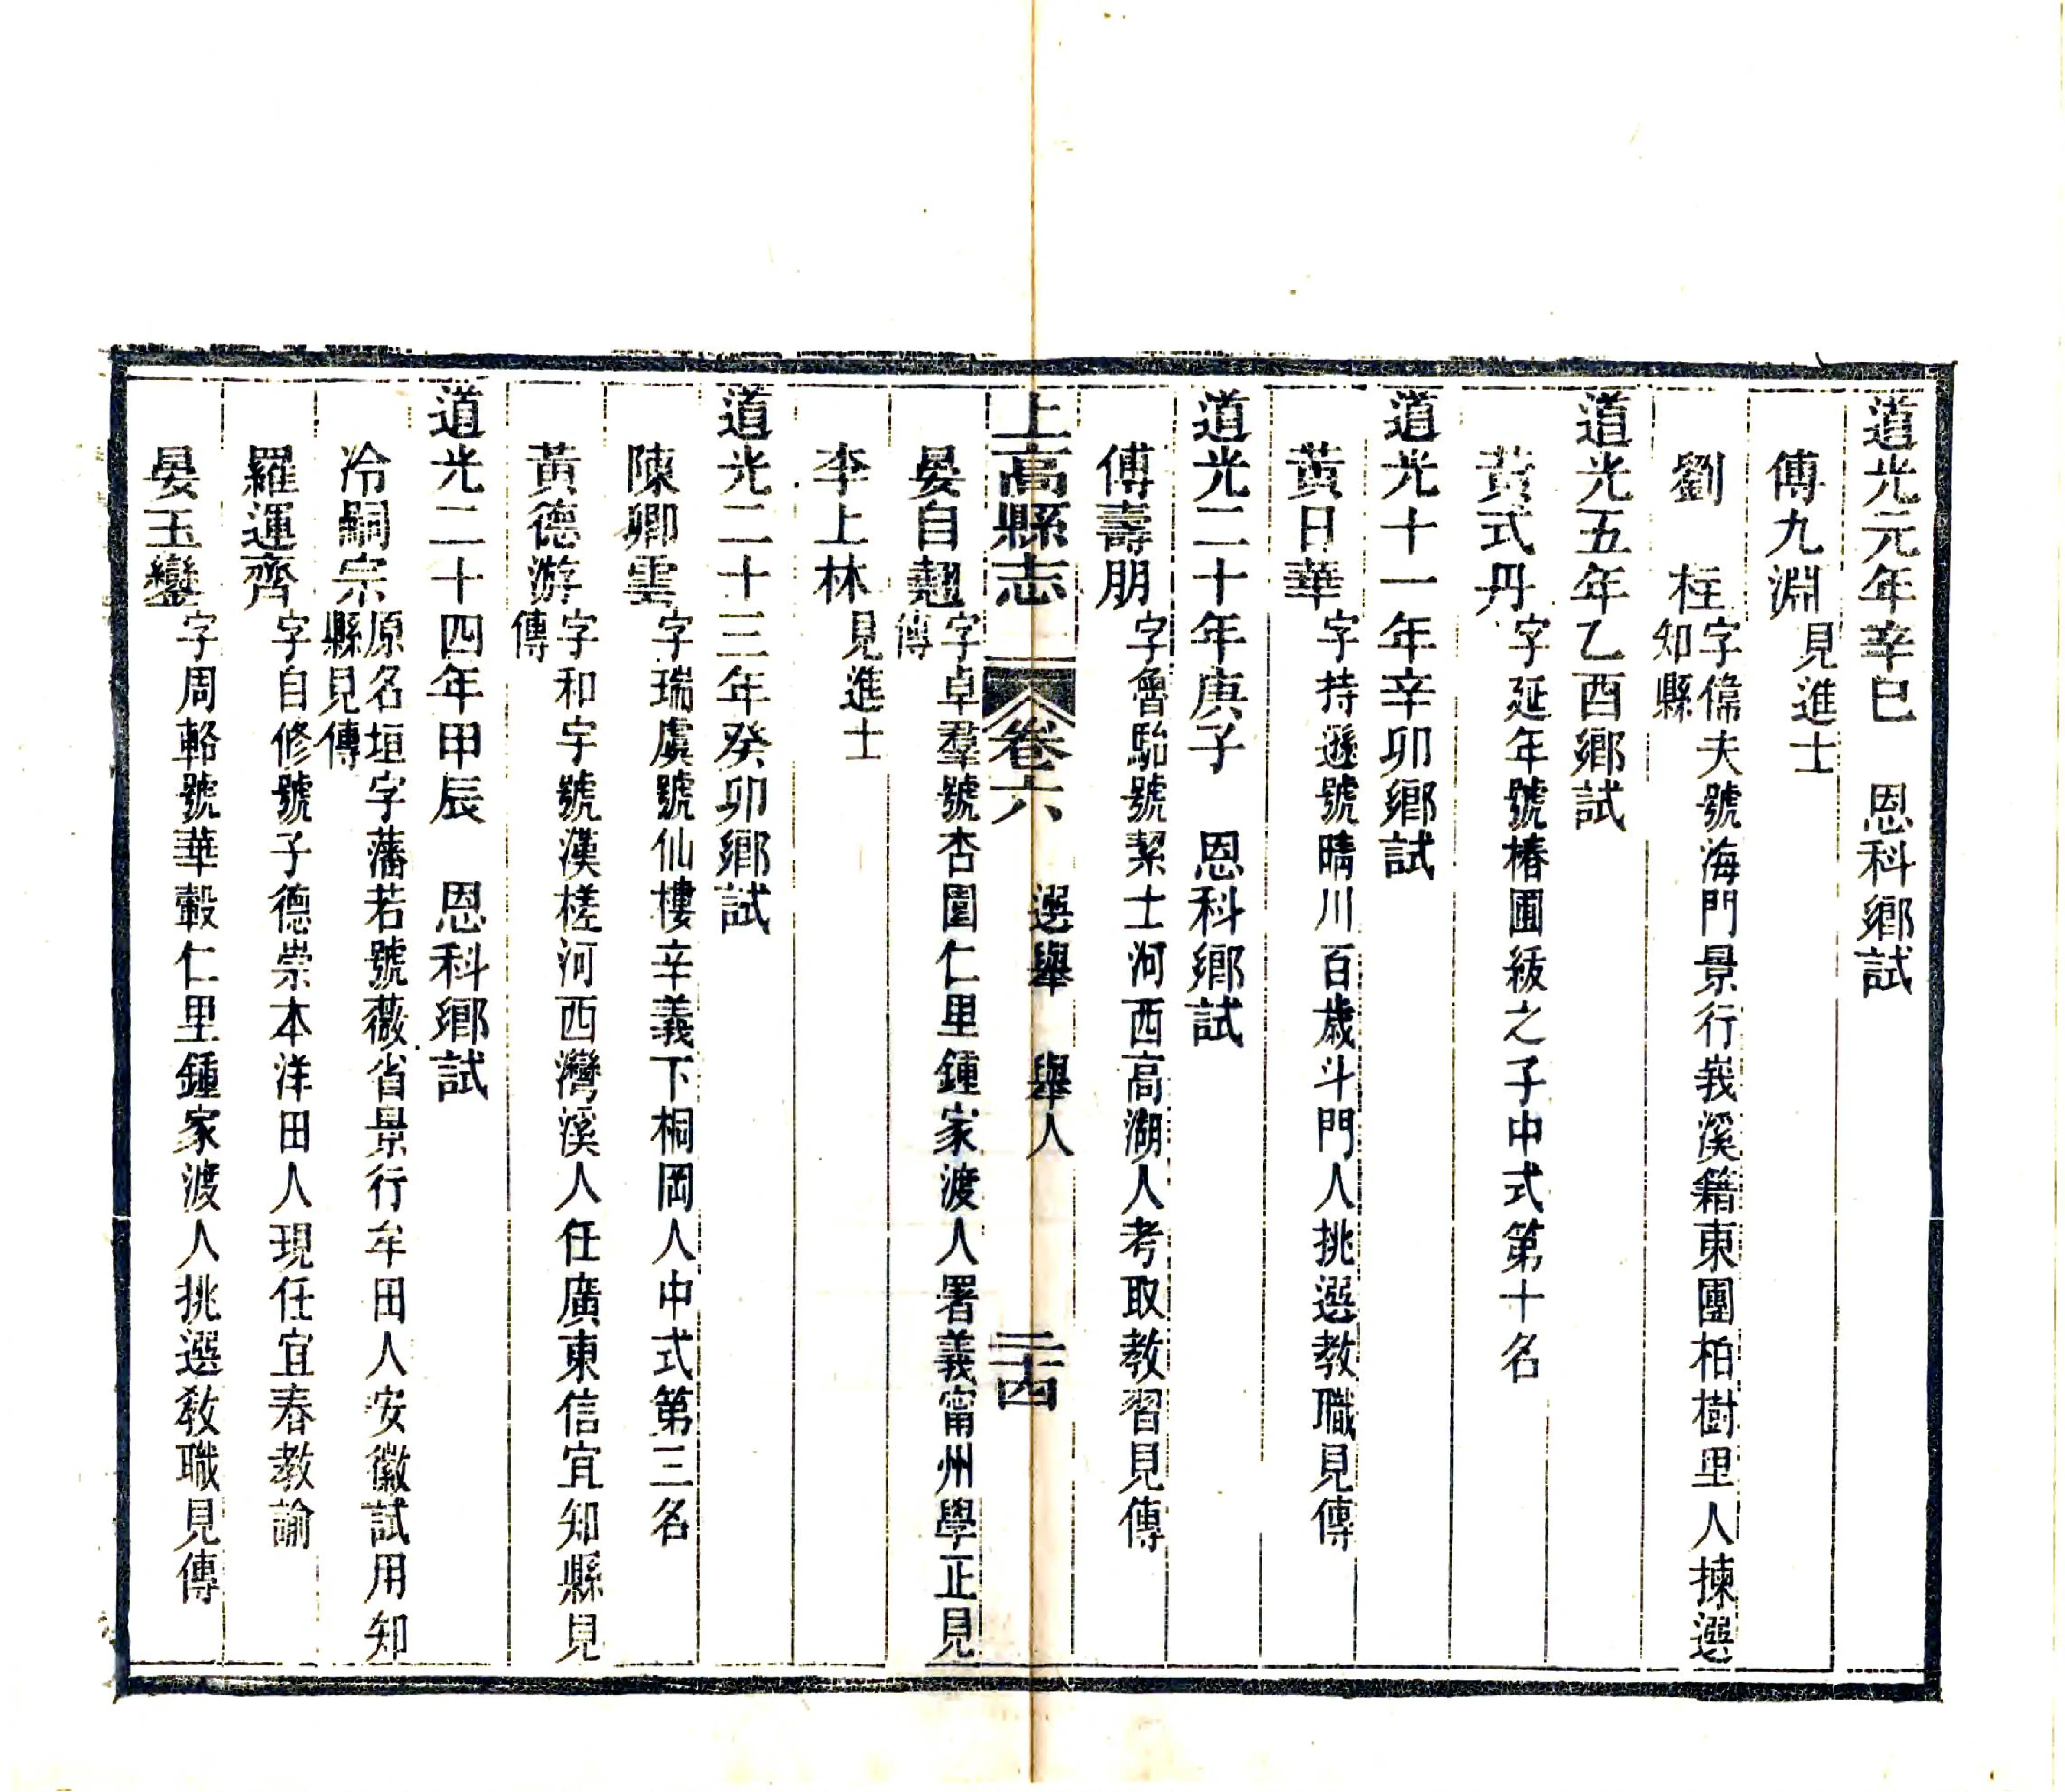 道光元年辛巳　恩科鄉試
傅九淵見進士
劉　柱字偉夫號海門景行峩溪籍東團柏樹里人揀選
知縣
道光五年乙酉鄉試
黃式丹字延年號椿圃紱之子中式第十名
道光十一年辛卯鄉試
黃日華字持遜號晴川百歲斗門人挑選教職見傳
道光二十年庚子　恩科鄉試
傅壽朋字魯駘號絜士河西高湖人考取教習見傳
上高縣志　卷六　選舉　舉人　二十四
晏自翹字卓羣號杏園仁里鍾家渡人署義甯州學正見
傳
李上林見進士
道光二十三年癸卯鄉試
陳卿雲字瑞虞號仙樓辛義下桐岡人中式第三名
黃德游字和宇號漢槎河西灣溪人任廣東信宜知縣見
傳
道光二十四年甲辰　恩科鄉試
冷嗣宗原名垣字藩若號薇省景行牟田人安徽試用知
縣見傳
羅運齊字自修號子德崇本洋田人現任宜春教諭
晏玉鑾字周輅號華轂仁里鍾家渡人挑選敎職見傳